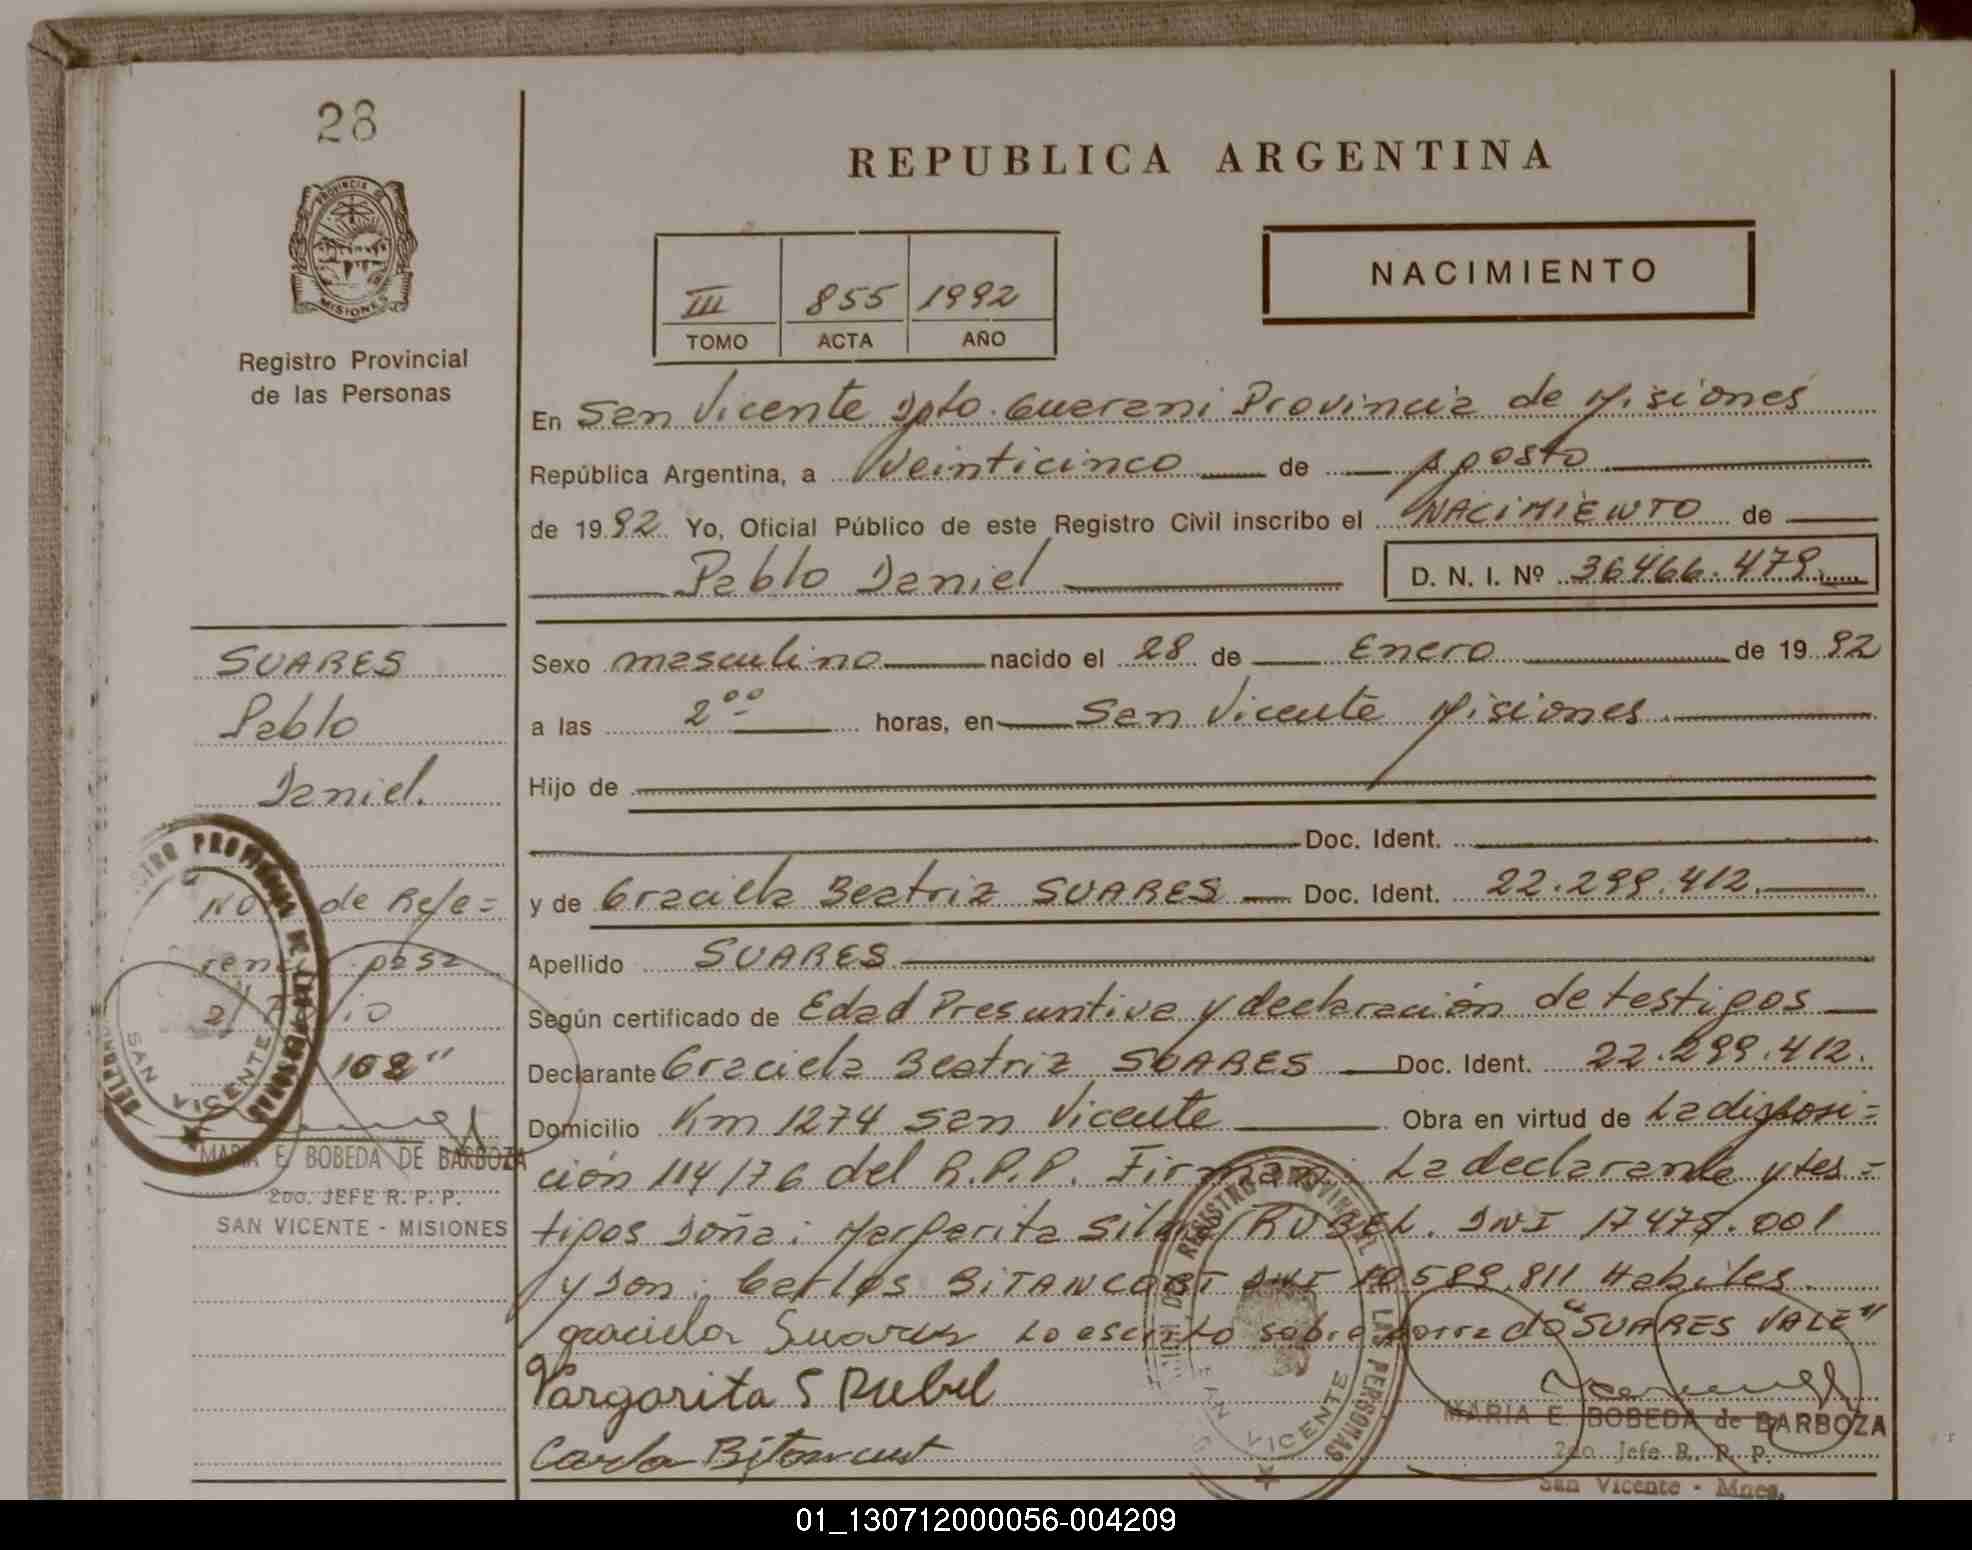 28
REPUBLICA ARGENTINA
PROVINCIA DE
MISIONES
Registro Provincial
de las Personas
III 855 1992
TOMO ACTA AÑO
NACIMIENTO
En San Vicente Dpto. Guarani Provincia de Misiones
República Argentina, a Veinticinco de Agosto
de 1992 Yo, Oficial Público de este Registro Civil inscribo el NACIMIENTO de
Pablo Daniel D. N. I. Nº 36466.479
Sexo masculino nacido el 28 de Enero de 1992
a las 2ºº horas, en San Vicente Misiones.
Hijo de
Doc. Ident.
y de Graciela Beatriz SUARES Doc. Ident. 22.299.412.
Apellido SUARES
Según certificado de Edad Presuntiva y declaración de testigos
Declarante Graciela Beatriz SUARES Doc. Ident. 22.299.412.
Domicilio Km 1274 San Vicente Obra en virtud de La disposi=
ción 114/76 del R.P.P. Firman: La declarante y tes=
tigos Doña: Margarita Silva RUBEL. DNI 17475.001
y Don: Carlos BITANCORT DNI 589.811 Habiles.
graciela Suares Lo escrito sobre borrado "SUARES VALE"
Margarita S Rubel
Carlos Bitancurt
MARIA E. BOBEDA de BARBOZA
2do. Jefe R. P. P.
San Vicente - Mnes.
SUARES
Pablo
Daniel.
de Refe=
pasa
108"
MARIA E. BOBEDA DE BARBOZA
2do. JEFE R. P. P.
SAN VICENTE - MISIONES
REGISTRO PROVINCIAL DE LAS PERSONAS
SAN VICENTE
01_130712000056-004209